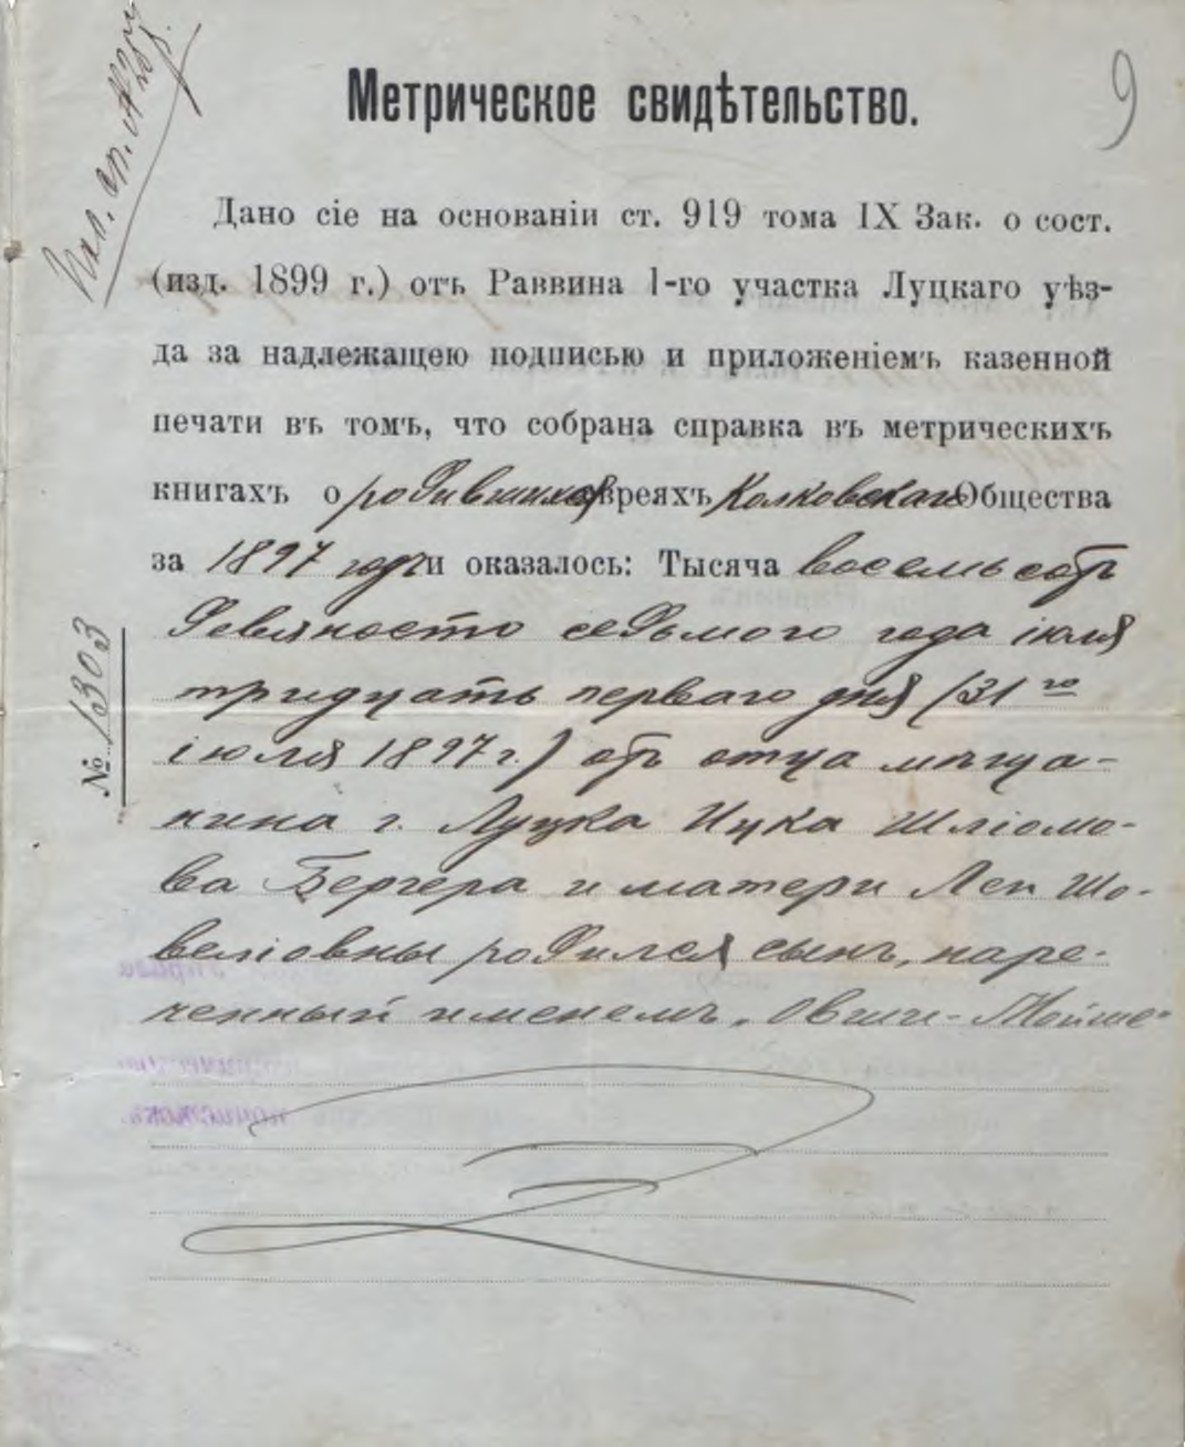 9
Метрическое свидѣтельство.
Дано сіе на основаніи ст. 919 тома IX Зак. о сост.
(изд. 1899 г.) отъ Раввина 1-го участка Луцкаго уѣз-
да за надлежащею подписью и приложеніемъ казенной
печати въ томъ, что собрана справка въ метрическихъ
книгахъ о родившихся евреяхъ Колковскаго Общества
за 1897 годъ и оказалось: Тысяча восемьсотъ
девяносто седьмого года іюля
тридцать перваго дня (31го
іюля 1897 г.) отъ отца мѣща-
нина г. Луцка Ицка Шліомо-
ва Бергера и матери Леи Шо-
веліовны родился сынъ, наре-
ченный именемъ „Овши-Мойше“
№ 1303